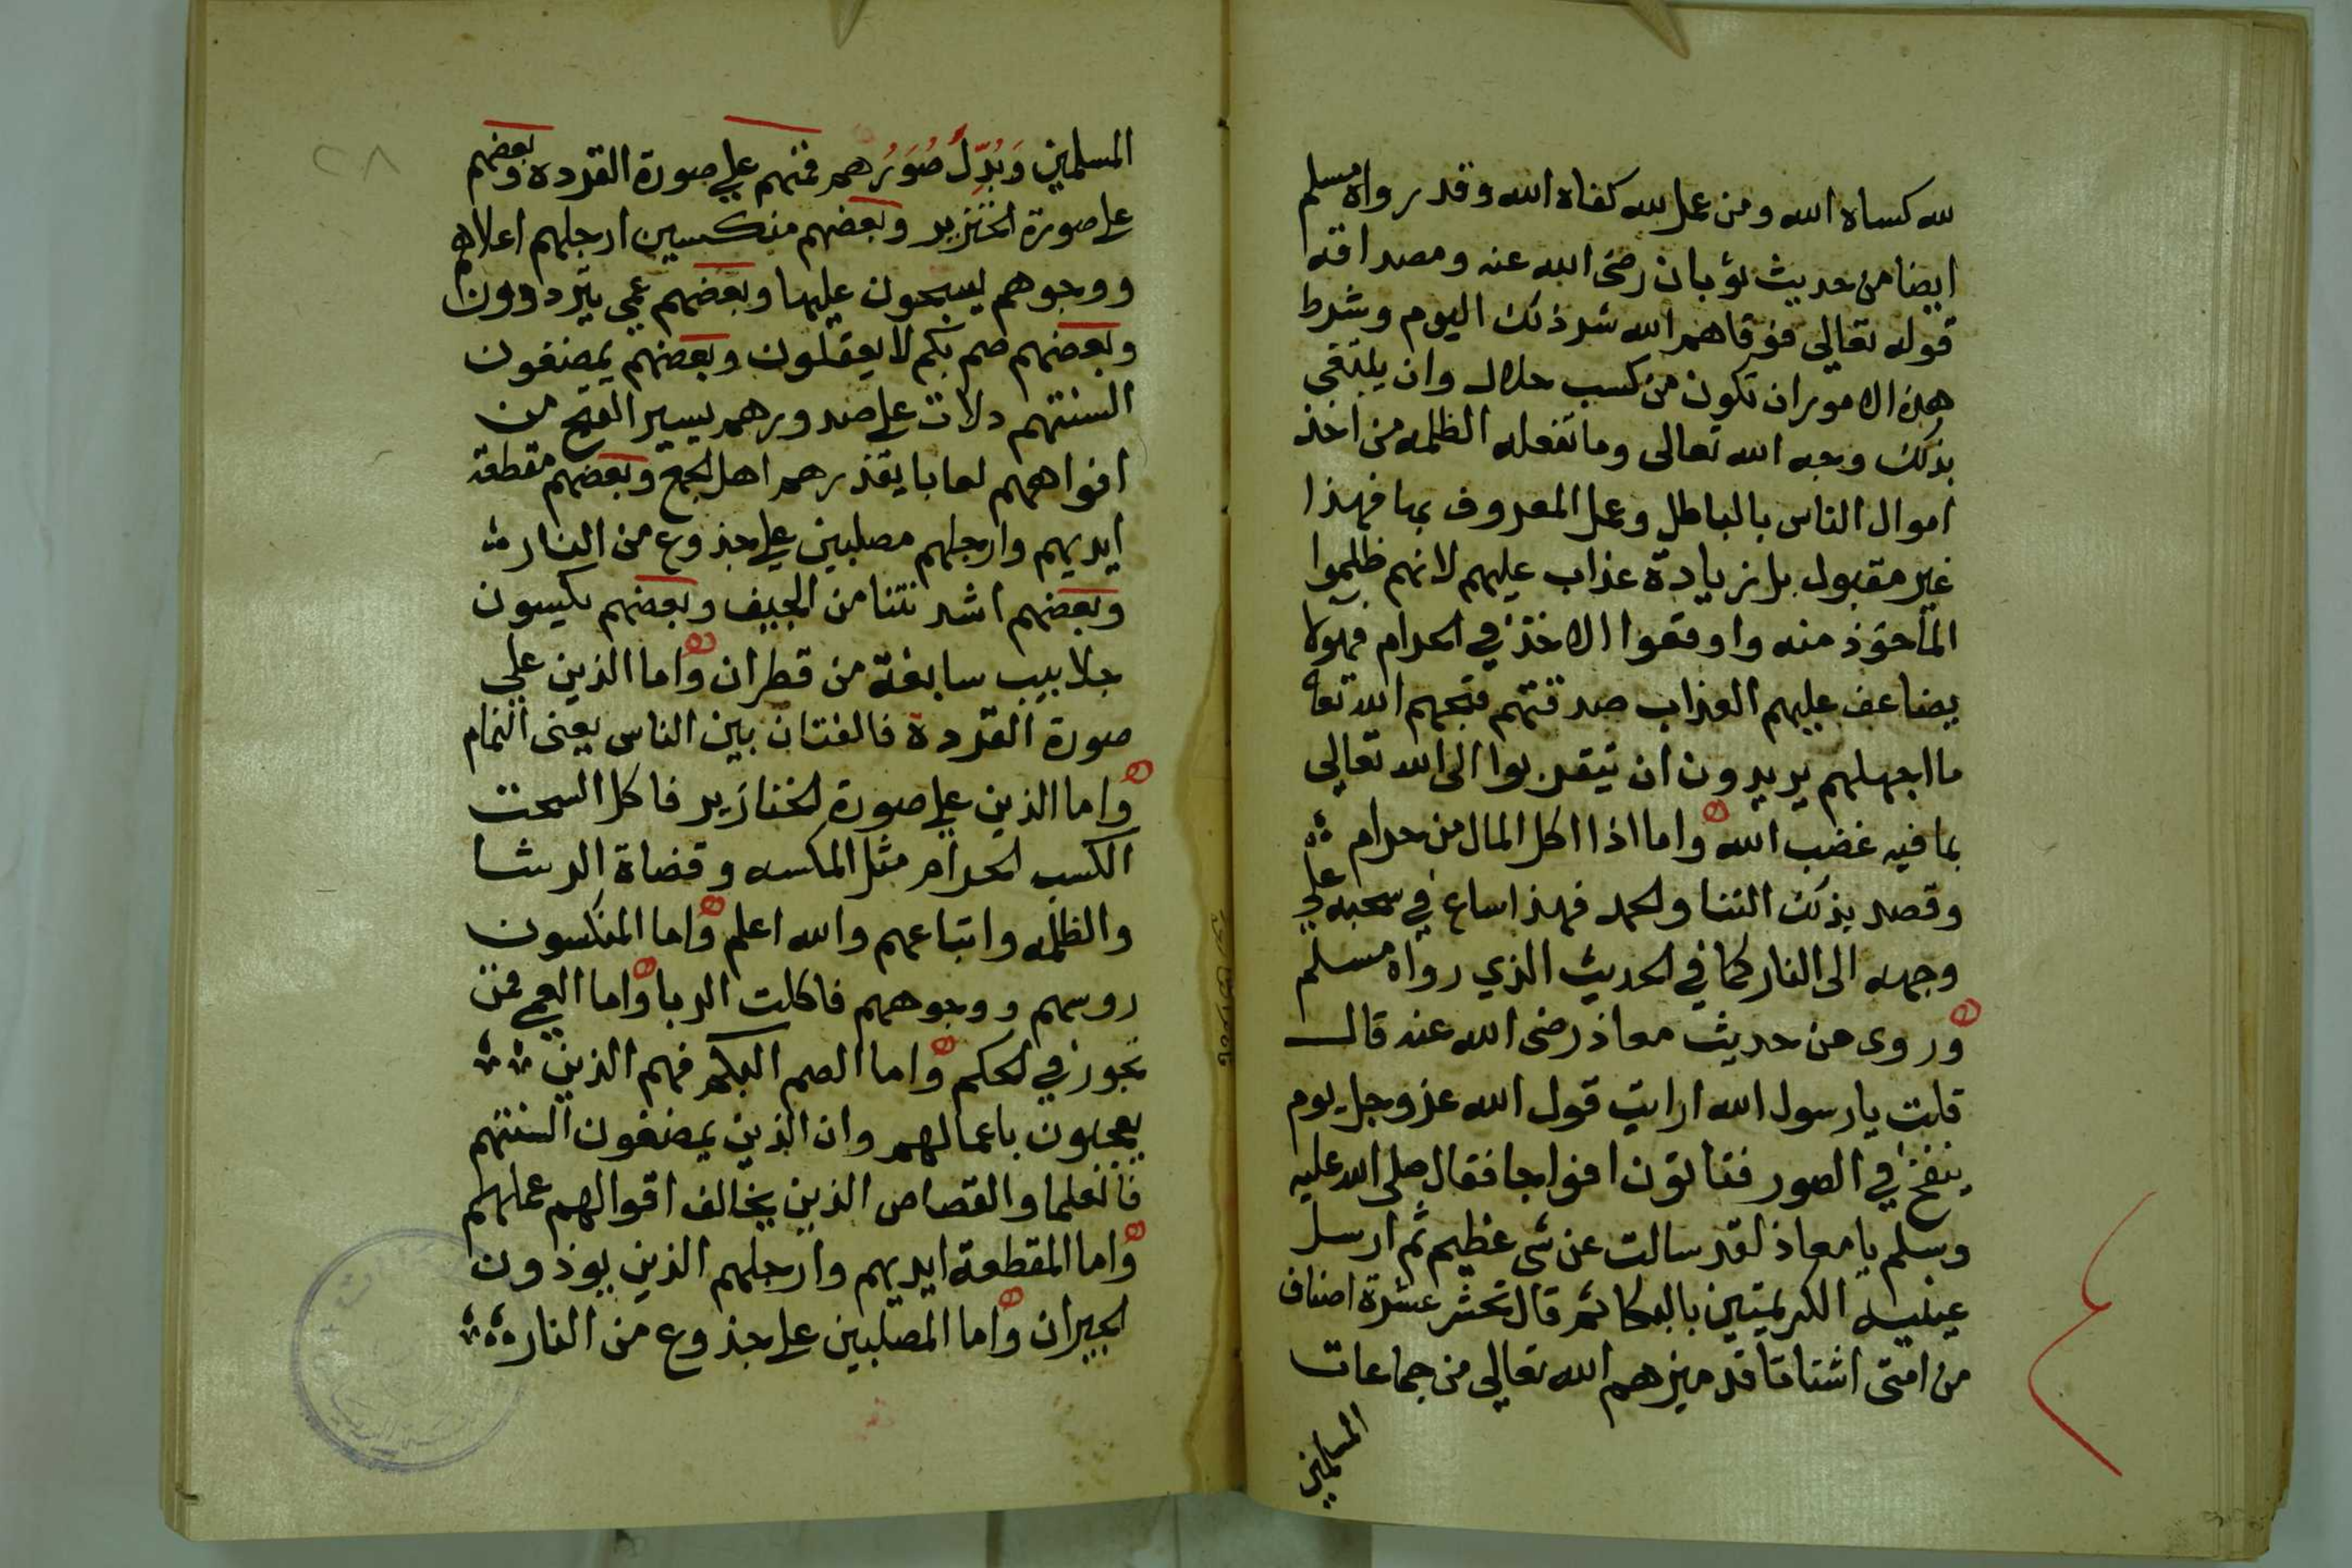 لله كساه الله ومن عمل لله كفاه الله وقد رواه مسلم
ايضا من حديث ثوبان رضى الله عنه ومصداقه
قوله تعالى فوقاهم الله شر ذلك اليوم وشرط
هذه الامور ان تكون من كسب حلال وان يبتغى
بذلك وجه الله تعالى وما تفعله الظلمه من اخذ
اموال الناس بالباطل وعمل المعروف بها فهذا
غير مقبول بل زيادة عذاب عليهم لانهم ظلموا
الماخوذ منه واوقعوا الاخذ في الحرام فهولا
يضاعف عليهم العذاب صدقتهم قبحهم الله تعا
ما اجهلهم يريدون ان يتقربوا الى الله تعالى
بما فيه غضب الله واما اذا اكل المال من حرام
وقصد بذلك الثنا والحمد فهذا ساع في سحبه على
وجهه الى النار كما في الحديث الذي رواه مسلم
وروى من حديث معاذ رضى الله عنه قال
قلت يا رسول الله ارايت قول الله عز وجل يوم
ينفخ في الصور فتاتون افواجا فقال صلى الله عليه
وسلم يا معاذ لقد سالت عن شى عظيم ثم ارسل
عينيه الكريمتين بالبكا ثم قال تحشر عشرة اصناف
من امتى اشتاتا قد ميزهم الله تعالى من جماعات
المسلمين
٢٨
المسلمين وَبُدِّلُ صُوَرُهم فمنهم على صورة القردة وبعضهم
على صورة الخنزير وبعضهم منكسين ارجلهم اعلاهم
ووجوهم يسبحون عليها وبعضهم عمي يترددون
وبعضهم صم بكم لا يعقلون وبعضهم يمضغون
السنتهم دلات على صدورهم يسير القيح من
افواههم لعابا يقذرهم اهل الجمع وبعضهم مقطعة
ايديهم وارجلهم مصلبين على جذوع من النار
وبعضهم اشد نتنا من الجيف وبعضهم يكسون
جلابيب سابغة من قطران واما الذين على
صورة القردة فالفتان بين الناس يعنى النمام
واما الذين على صورة الخنازير فاكل السحت
الكسب الحرام مثل المكسه وقضاة الرشا
والظلمه واتباعهم والله اعلم واما المنكسون
روسهم ووجوههم فاكلت الربا واما العمي فمن
يجوز في الحكم واما الصم البكم فهم الذين
يعجبون باعمالهم وان الذين يمضغون السنتهم
فالعلما والقصاص الذين يخالف اقوالهم عملهم
واما المقطعة ايديهم وارجلهم الذين يوذون
الجيران واما المصلبين على جذوع من النار